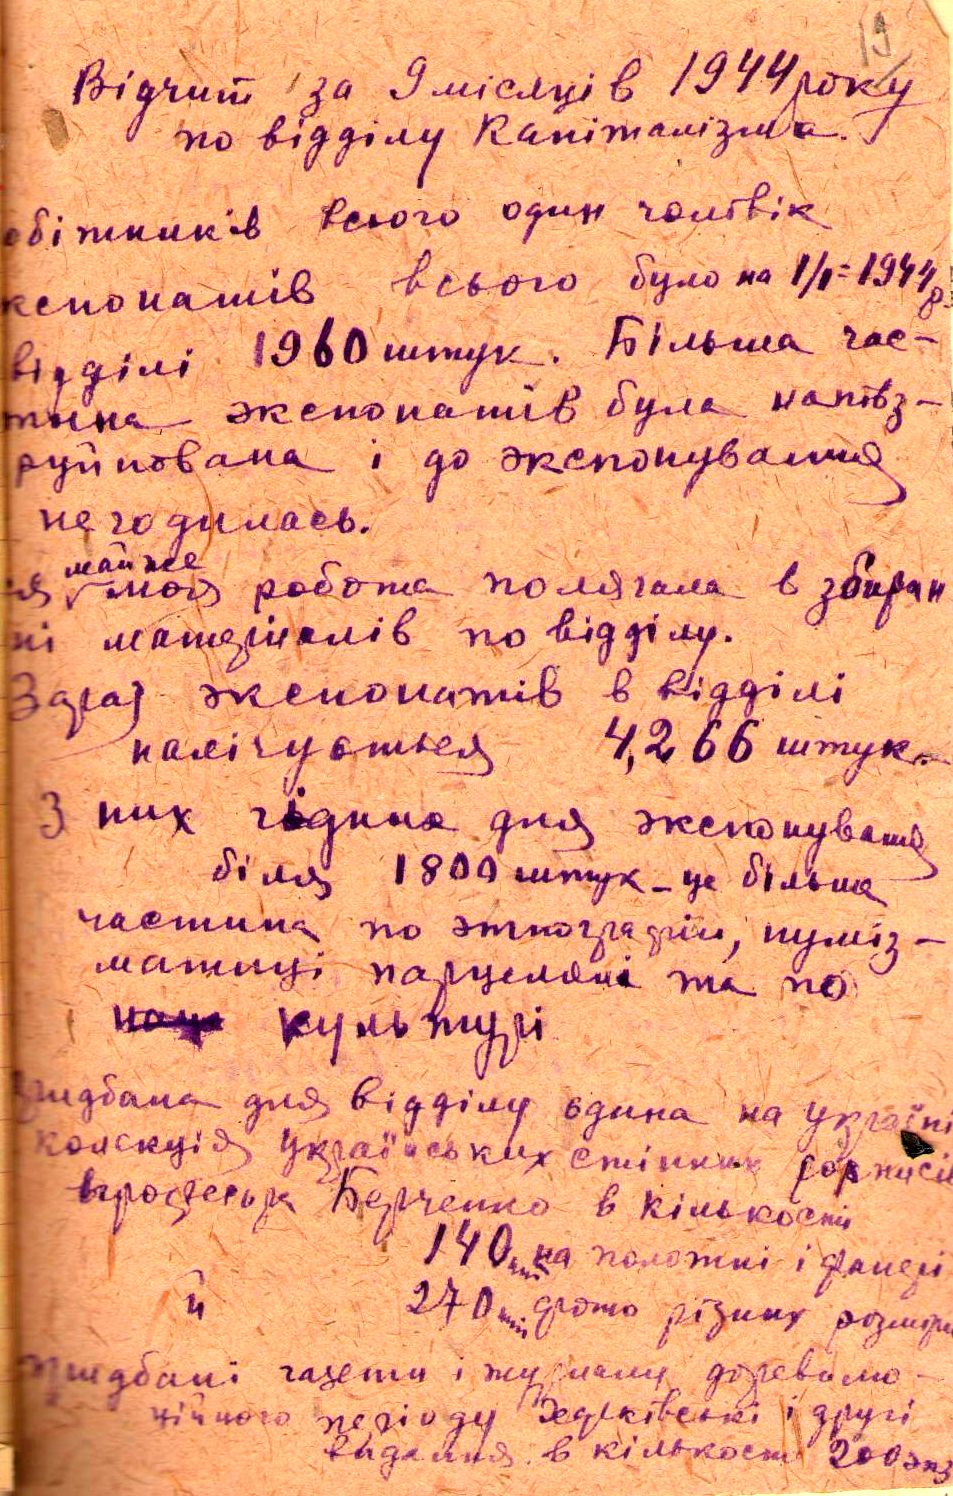 19
Відчит за 9 місяців 1944 року
по відділу Капіталізма.
обітників всього один чоловік
кспонатів всього було на 1/I=1944р.
відділі 1960 штук. Більша час-
тина экспонатів була напівз-
руйнована і до экспонування
не годилась.
майже
ся моя робота полягала в збиран
ні матеріалів по відділу.
Зараз экспонатів в відділі
налічується 4,266 штук.
З них гідних для экспонування
біля 1800 штук - це більша
частина по этнографіи, нуміз-
матиці парцеляні та по
культурі
ридбана для відділу єдина на Україні
колекція Українських стінних розписів
професора Берченко в кількости
140 шт на полотні і фанері
й 270 шт фото різних розмірі
придбані газети і журнали дореволю-
ційного періоду Харківські і другі
видання в кількости 200 экз